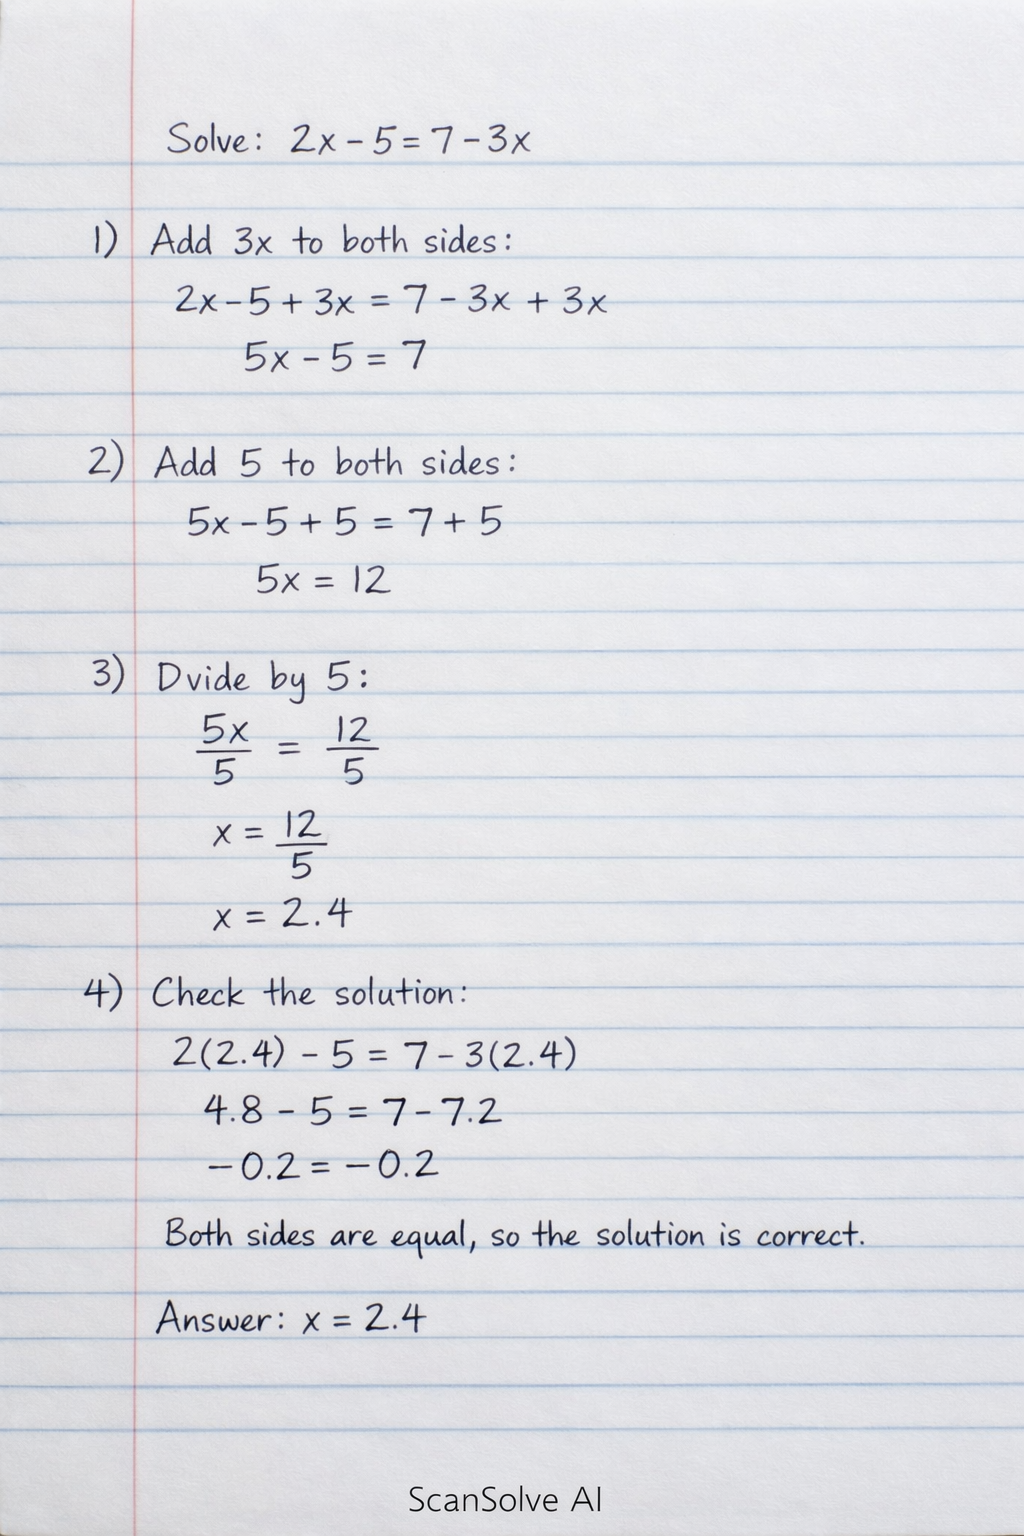 Solve: 2x - 5 = 7 - 3x
1) Add 3x to both sides:
2x - 5 + 3x = 7 - 3x + 3x
5x - 5 = 7
2) Add 5 to both sides:
5x - 5 + 5 = 7 + 5
5x = 12
3) Dvide by 5:
5x/5 = 12/5
x = 12/5
x = 2.4
4) Check the solution:
2(2.4) - 5 = 7 - 3(2.4)
4.8 - 5 = 7 - 7.2
-0.2 = -0.2
Both sides are equal, so the solution is correct.
Answer: x = 2.4
ScanSolve AI